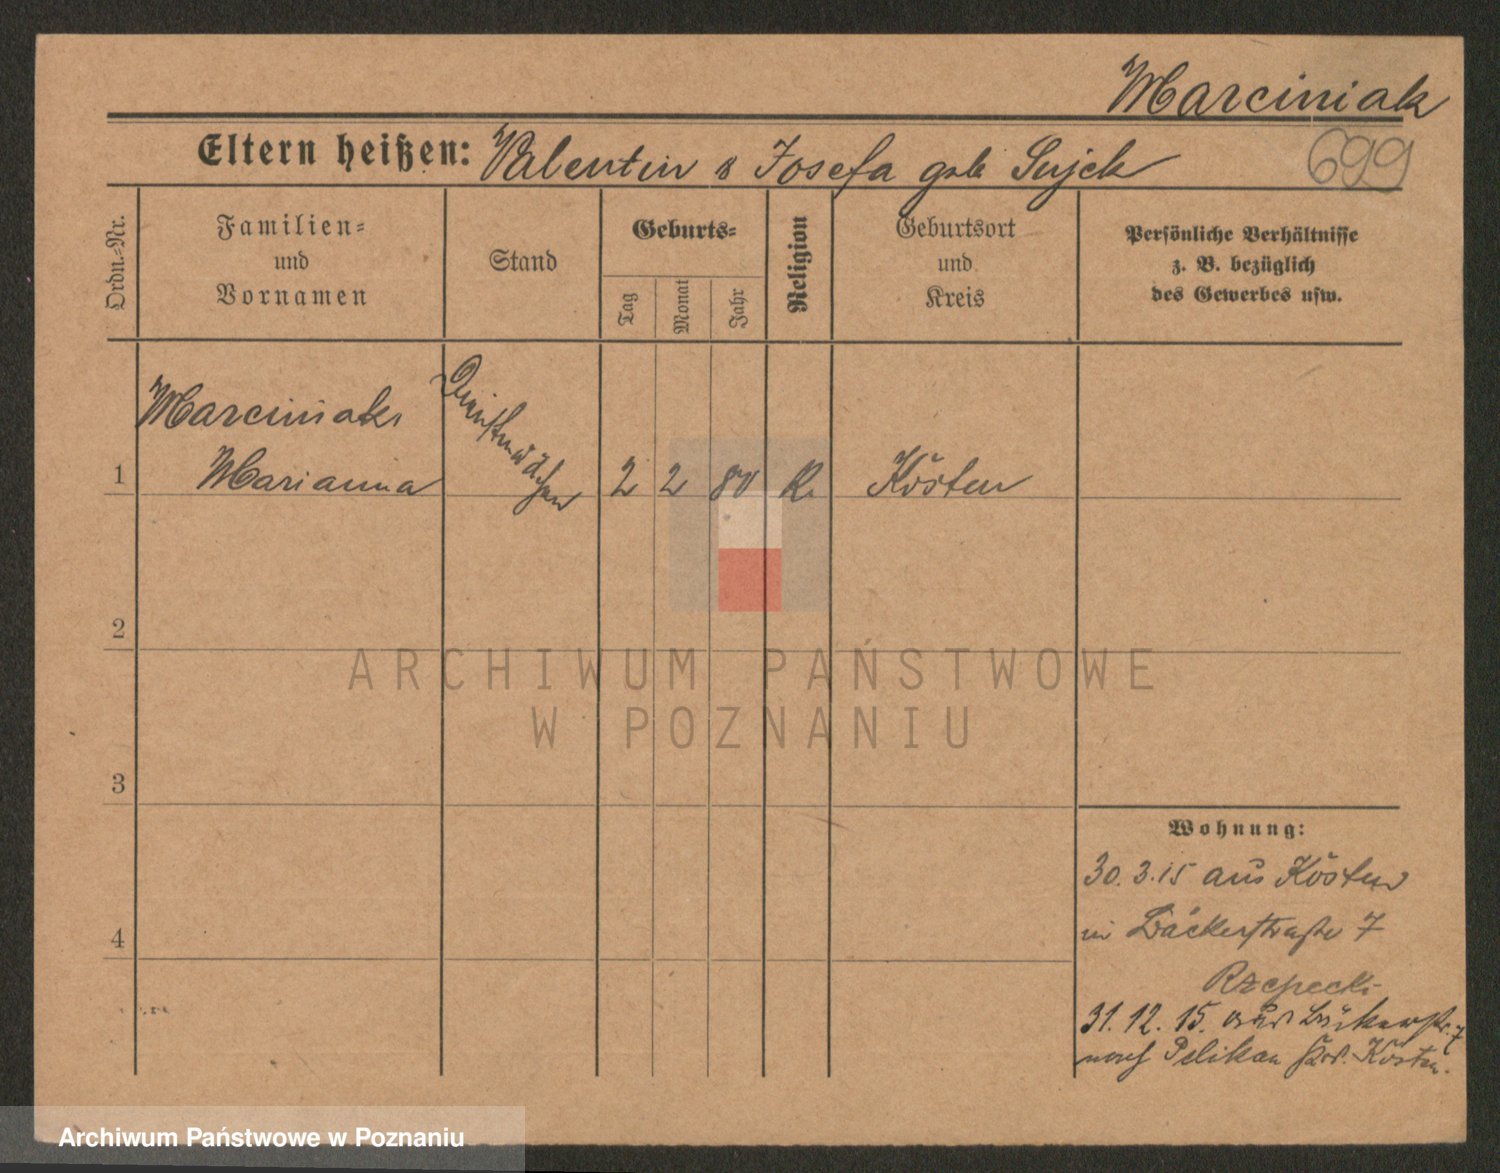 Marciniak
Eltern heißen: Valentin & Josefa geb. Sujek
699
Ordn.=Nr.
Familien=
und
Vornamen
Stand
Geburts=
Tag
Monat
Jahr
Religion
Geburtsort
und
Kreis
Persönliche Verhältnisse
z. B. bezüglich
des Gewerbes usw.
Marciniak
Marianna
Dienstmädchen
1
2 2 80 K. Kosten
2
ARCHIWUM PAŃSTWOWE
W POZNANIU
3
Wohnung:
30. 3. 15 aus Kosten
in Bäckerstraße 7
4
Rzepecki
31. 12. 15. aus Bäckerstr. 7
nach Pelikan Krs. Kosten.
Archiwum Państwowe w Poznaniu